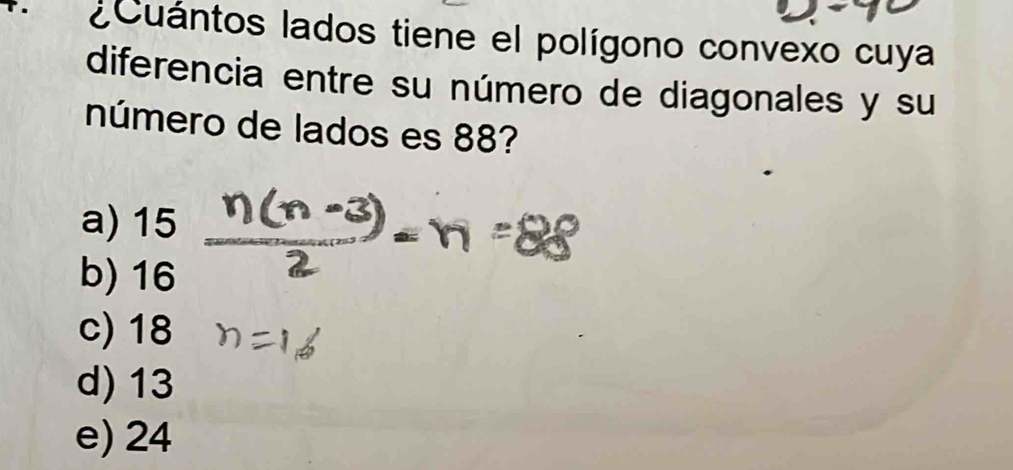 ¿Cuántos lados tiene el polígono convexo cuya
diferencia entre su número de diagonales y su
número de lados es 88?
a) 15
n(n-3)/2 - n = 88
b) 16
c) 18
n=16
d) 13
e) 24